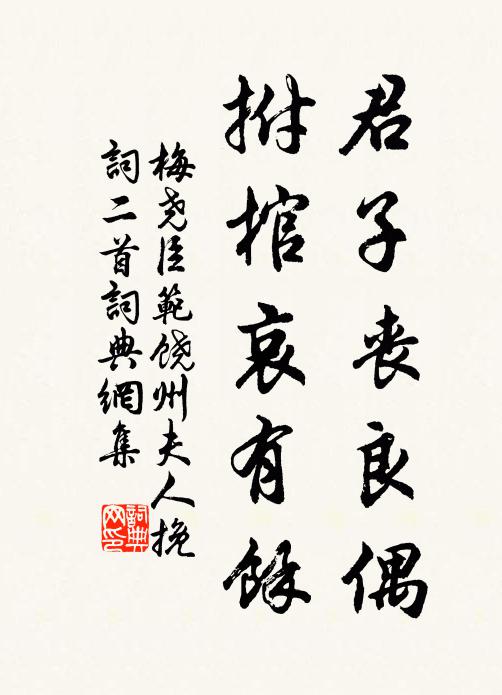 君子丧良偶
拊棺哀有馀
梅尧臣範饶州夫人挽
詞二首詞典網集
詞典
网印